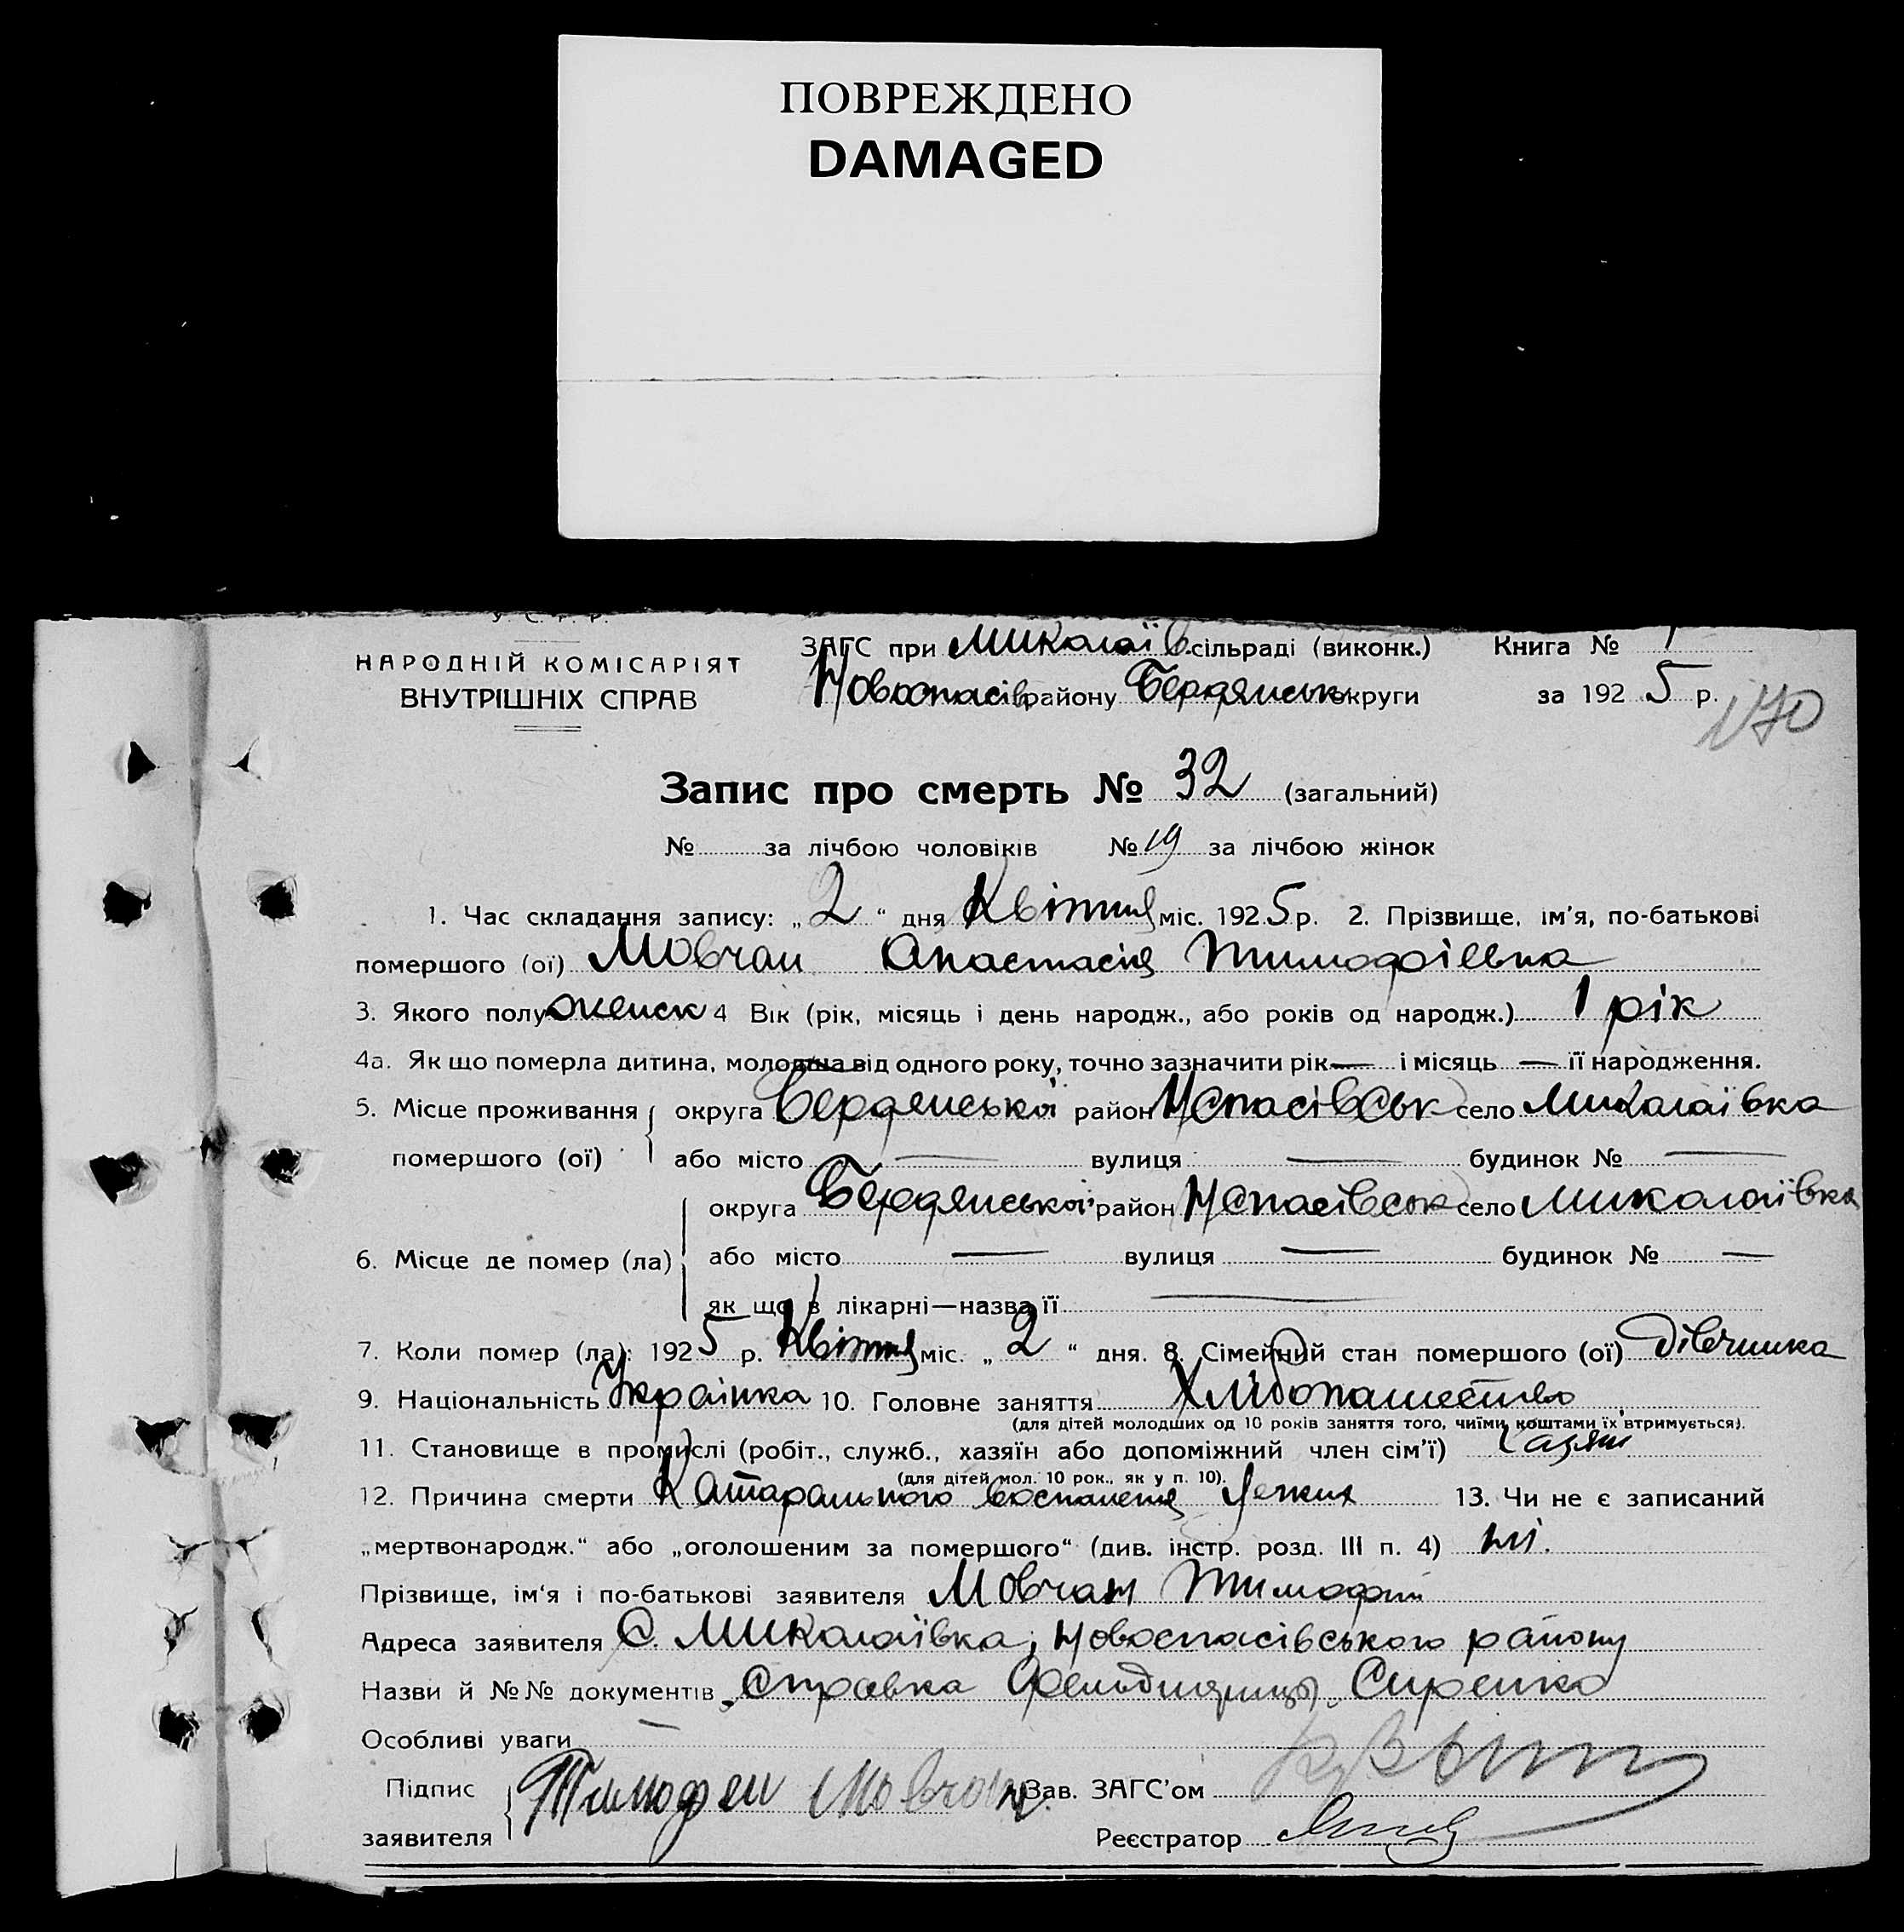 ПОВРЕЖДЕНО
DAMAGED
У. С. Р. Р.
НАРОДНІЙ КОМІСАРІЯТ
ВНУТРІШНІХ СПРАВ
ЗАГС при Миколаїв сільраді (виконк.) Книга № 1
Новоспасів району Бердянськ округи за 1925 р.
170
Запис про смерть № 32 (загальний)
№ за лічбою чоловіків № 19 за лічбою жінок
1. Час складання запису: „2“ дня Квітня міс. 1925 р. 2. Прізвище, ім’я, по-батькові
помершого (ої) Мовчан Анастасія Тимофіївна
3. Якого полу женск 4 Вік (рік, місяць і день народж., або років од народж.) 1 рік
4а. Як що померла дитина, молодша від одного року, точно зазначити рік — і місяць — її народження.
5. Місце проживання округа Бердянської район Нспасівськ село Миколаївка
помершого (ої) або місто — вулиця — будинок № —
округа Бердянської район Нспасівськ село Миколаївка
6. Місце де помер (ла) або місто — вулиця — будинок № —
як що в лікарні—назва її —
7. Коли помер (ла): 1925 р. Квітня міс. „2“ дня. 8. Сімейний стан помершого (ої) дівчинка
9. Національність Українка 10. Головне заняття Хлібопашество
(для дітей молодших од 10 років заняття того, чиїми коштами їх втримується).
11. Становище в промислі (робіт., служб., хазяїн або допоміжний член сім’ї) Хазяїн
(для дітей мол. 10 рок., як у п. 10).
12. Причина смерти Катарального воспаленія Легких 13. Чи не є записаний
„мертвонародж.“ або „оголошеним за помершого“ (див. інстр. розд. III п. 4) ні.
Прізвище, ім‘я і по-батькові заявителя Мовчан Тимофій
Адреса заявителя С. Миколаївка, Новоспасівського району
Назви й №№ документів Справка Фельдшерицы Сиренко
Особливі уваги —
Підпис Тимофей Мовчан Зав. ЗАГС’ом
заявителя Реєстратор